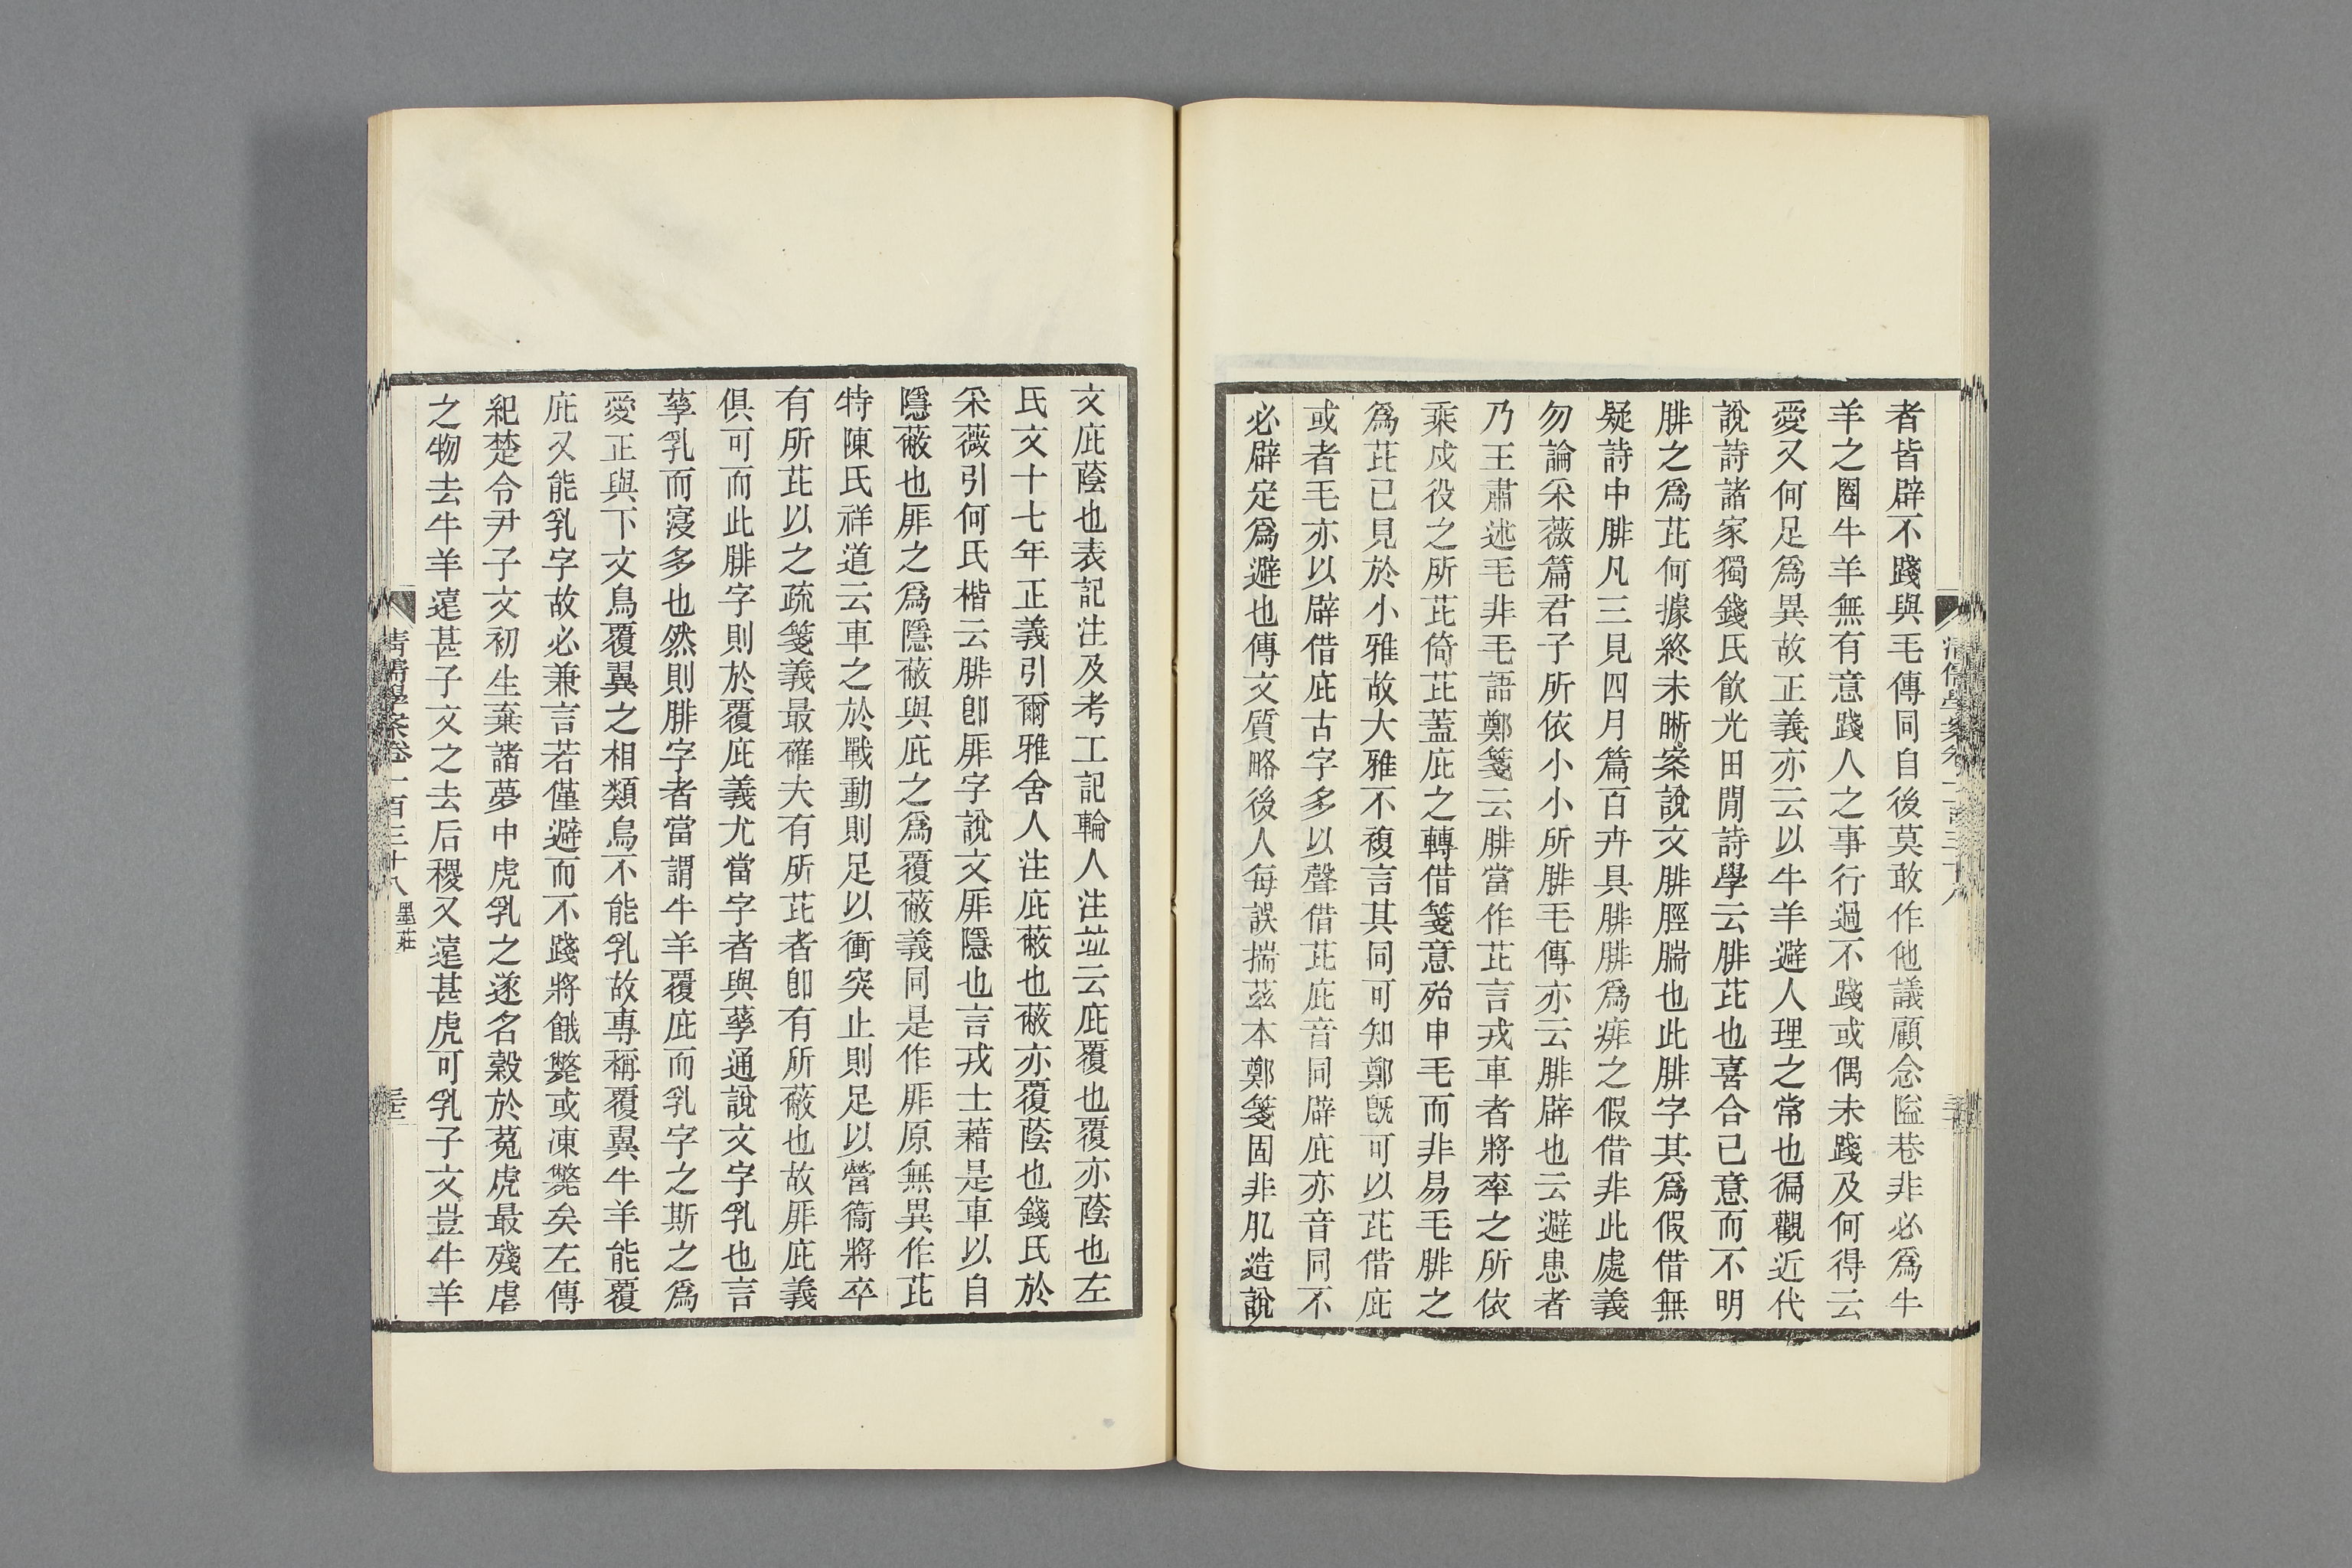 者皆辟不踐與毛傳同自後莫敢作他議顧念隘巷非必爲牛
羊之圈牛羊無有意踐人之事行過不踐或偶未踐及何得云
愛又何足爲異故正義亦云以牛羊避人理之常也徧觀近代
說詩諸家獨錢氏飮光田閒詩學云腓芘也喜合已意而不明
腓之爲芘何據終未晰案說文腓脛腨也此腓字其爲假借無
疑詩中腓凡三見四月篇百卉具腓腓爲痱之假借非此處義
勿論采薇篇君子所依小小所腓毛傳亦云腓辟也云避患者
乃王肅述毛非毛語鄭箋云腓當作芘言戎車者將率之所依
乘戍役之所芘倚芘蓋庇之轉借箋意殆申毛而非易毛腓之
爲芘已見於小雅故大雅不複言其同可知鄭旣可以芘借庇
或者毛亦以辟借庇古字多以聲借芘庇音同辟庇亦音同不
必辟定爲避也傳文質略後人每誤揣茲本鄭箋固非肊造說
文庇蔭也表記注及考工記輪人注並云庇覆也覆亦蔭也左
氏文十七年正義引爾雅舍人注庇蔽也蔽亦覆蔭也錢氏於
采薇引何氏楷云腓卽厞字說文厞隱也言戎士藉是車以自
隱蔽也厞之爲隱蔽與庇之爲覆蔽義同是作厞原無異作芘
特陳氏祥道云車之於戰動則足以衝突止則足以營衞將卒
有所芘以之疏箋義最確夫有所芘者卽有所蔽也故厞庇義
俱可而此腓字則於覆庇義尤當字者與孳通說文字乳也言
孳乳而寖多也然則腓字者當謂牛羊覆庇而乳字之斯之爲
愛正與下文鳥覆翼之相類鳥不能乳故專稱覆翼牛羊能覆
庇又能乳字故必兼言若僅避而不踐將餓斃或凍斃矣左傳
紀楚令尹子文初生棄諸夢中虎乳之遂名穀於菟虎最殘虐
之物去牛羊遠甚子文之去后稷又遠甚虎可乳子文豈牛羊
清儒學案卷一百三十八 墨莊